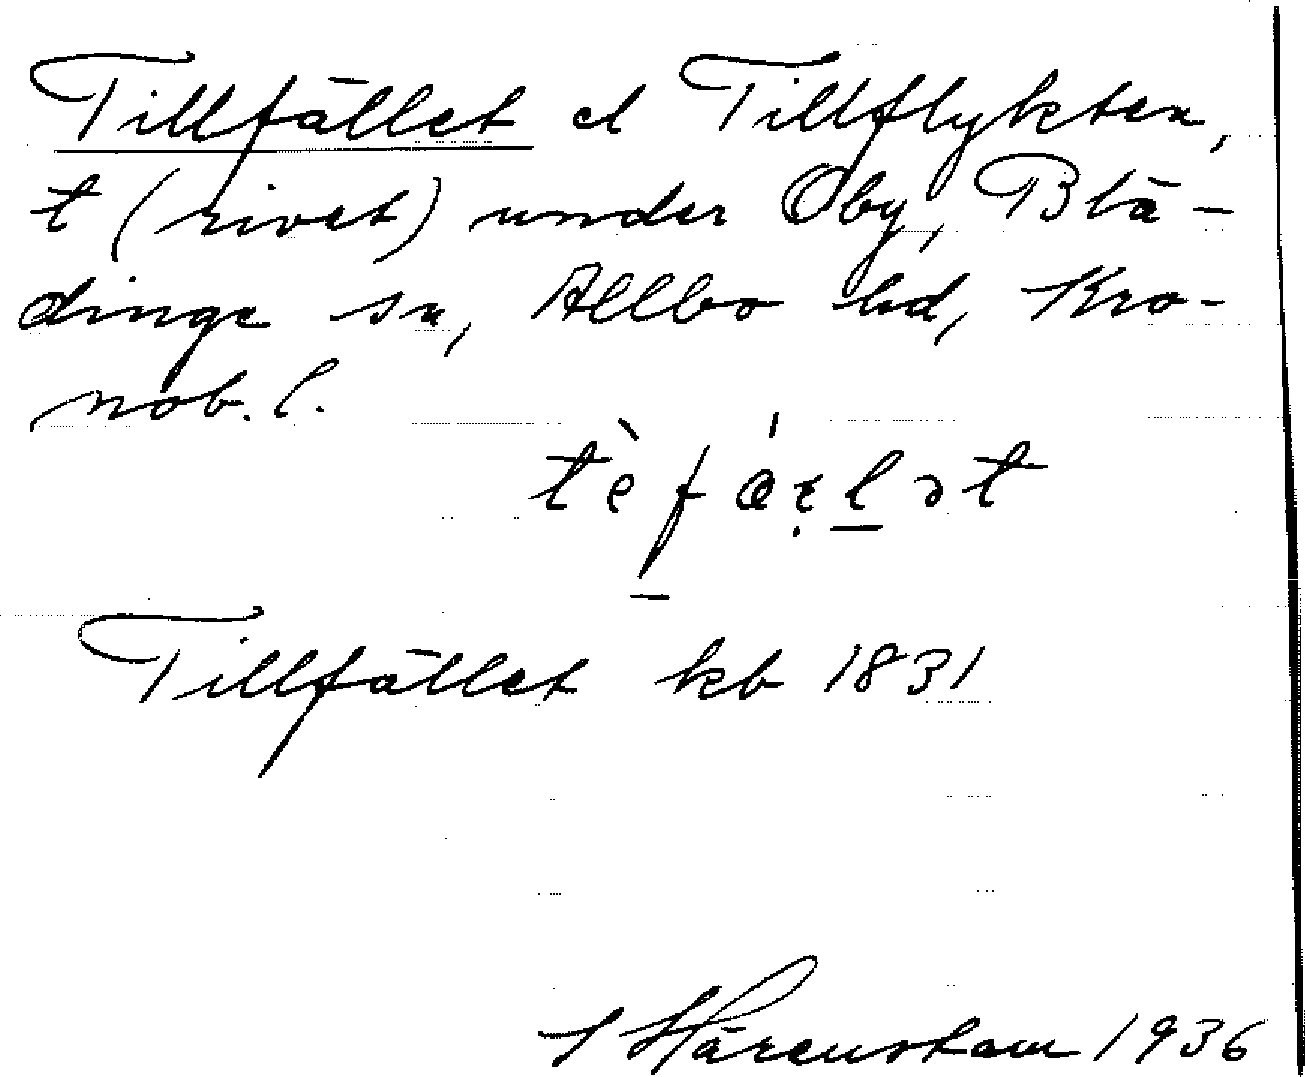 Tillfället el Tillflykten,
t (rivet) under Öby, Blä-
dinge sn, Allbo hd, Kro-
nob. l.
Tillfället kb 1831
S Härenstam 1936